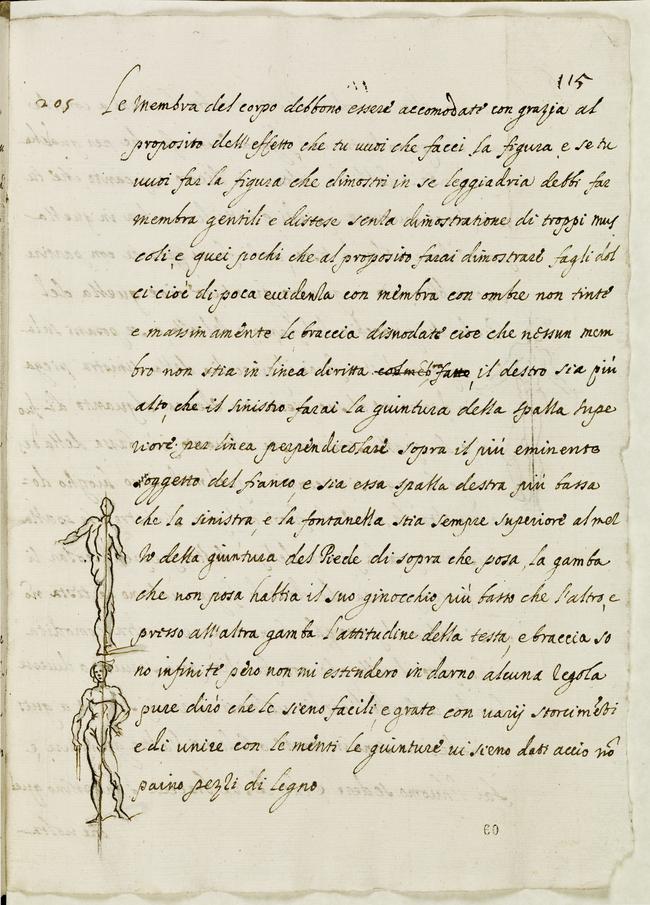 115
205 Le membra del corpo debbono essere accomodate con grazia al
proposito dell' effetto che tu vuoi che facci la figura, e se tu
vuoi far la figura che dimostri in se leggiadria debbi far
membra gentili e distese senza dimostratione di troppi mus
coli, e quei pochi che al proposito farai dimostrare fagli dol
ci cioè di poca evidenza con membra con ombre non tinte
e massimamente le braccia disnodate cioe che nessun mem
bro non stia in linea diritta il destro sia più
alto, che il sinistro farai la giuntura della spalla supe
riore per linea perpendicolare sopra il più eminente
soggetto del fianco, e sia essa spalla destra più bassa
che la sinistra, e la fontanella stia sempre superiore al mez
zo della giuntura del Piede di sopra che posa, la gamba
che non posa habbia il suo ginocchio più basso che l'altro, e
presso all'altra gamba l'attitudine della testa, e braccia so
no infinite però non mi estendero in darno alcuna regola
pure dirò che le sieno facili, e grate con varij storcimēti
e di unire con le mēti le giunture vi sieno dati accio nō
paino pezzi di legno
60